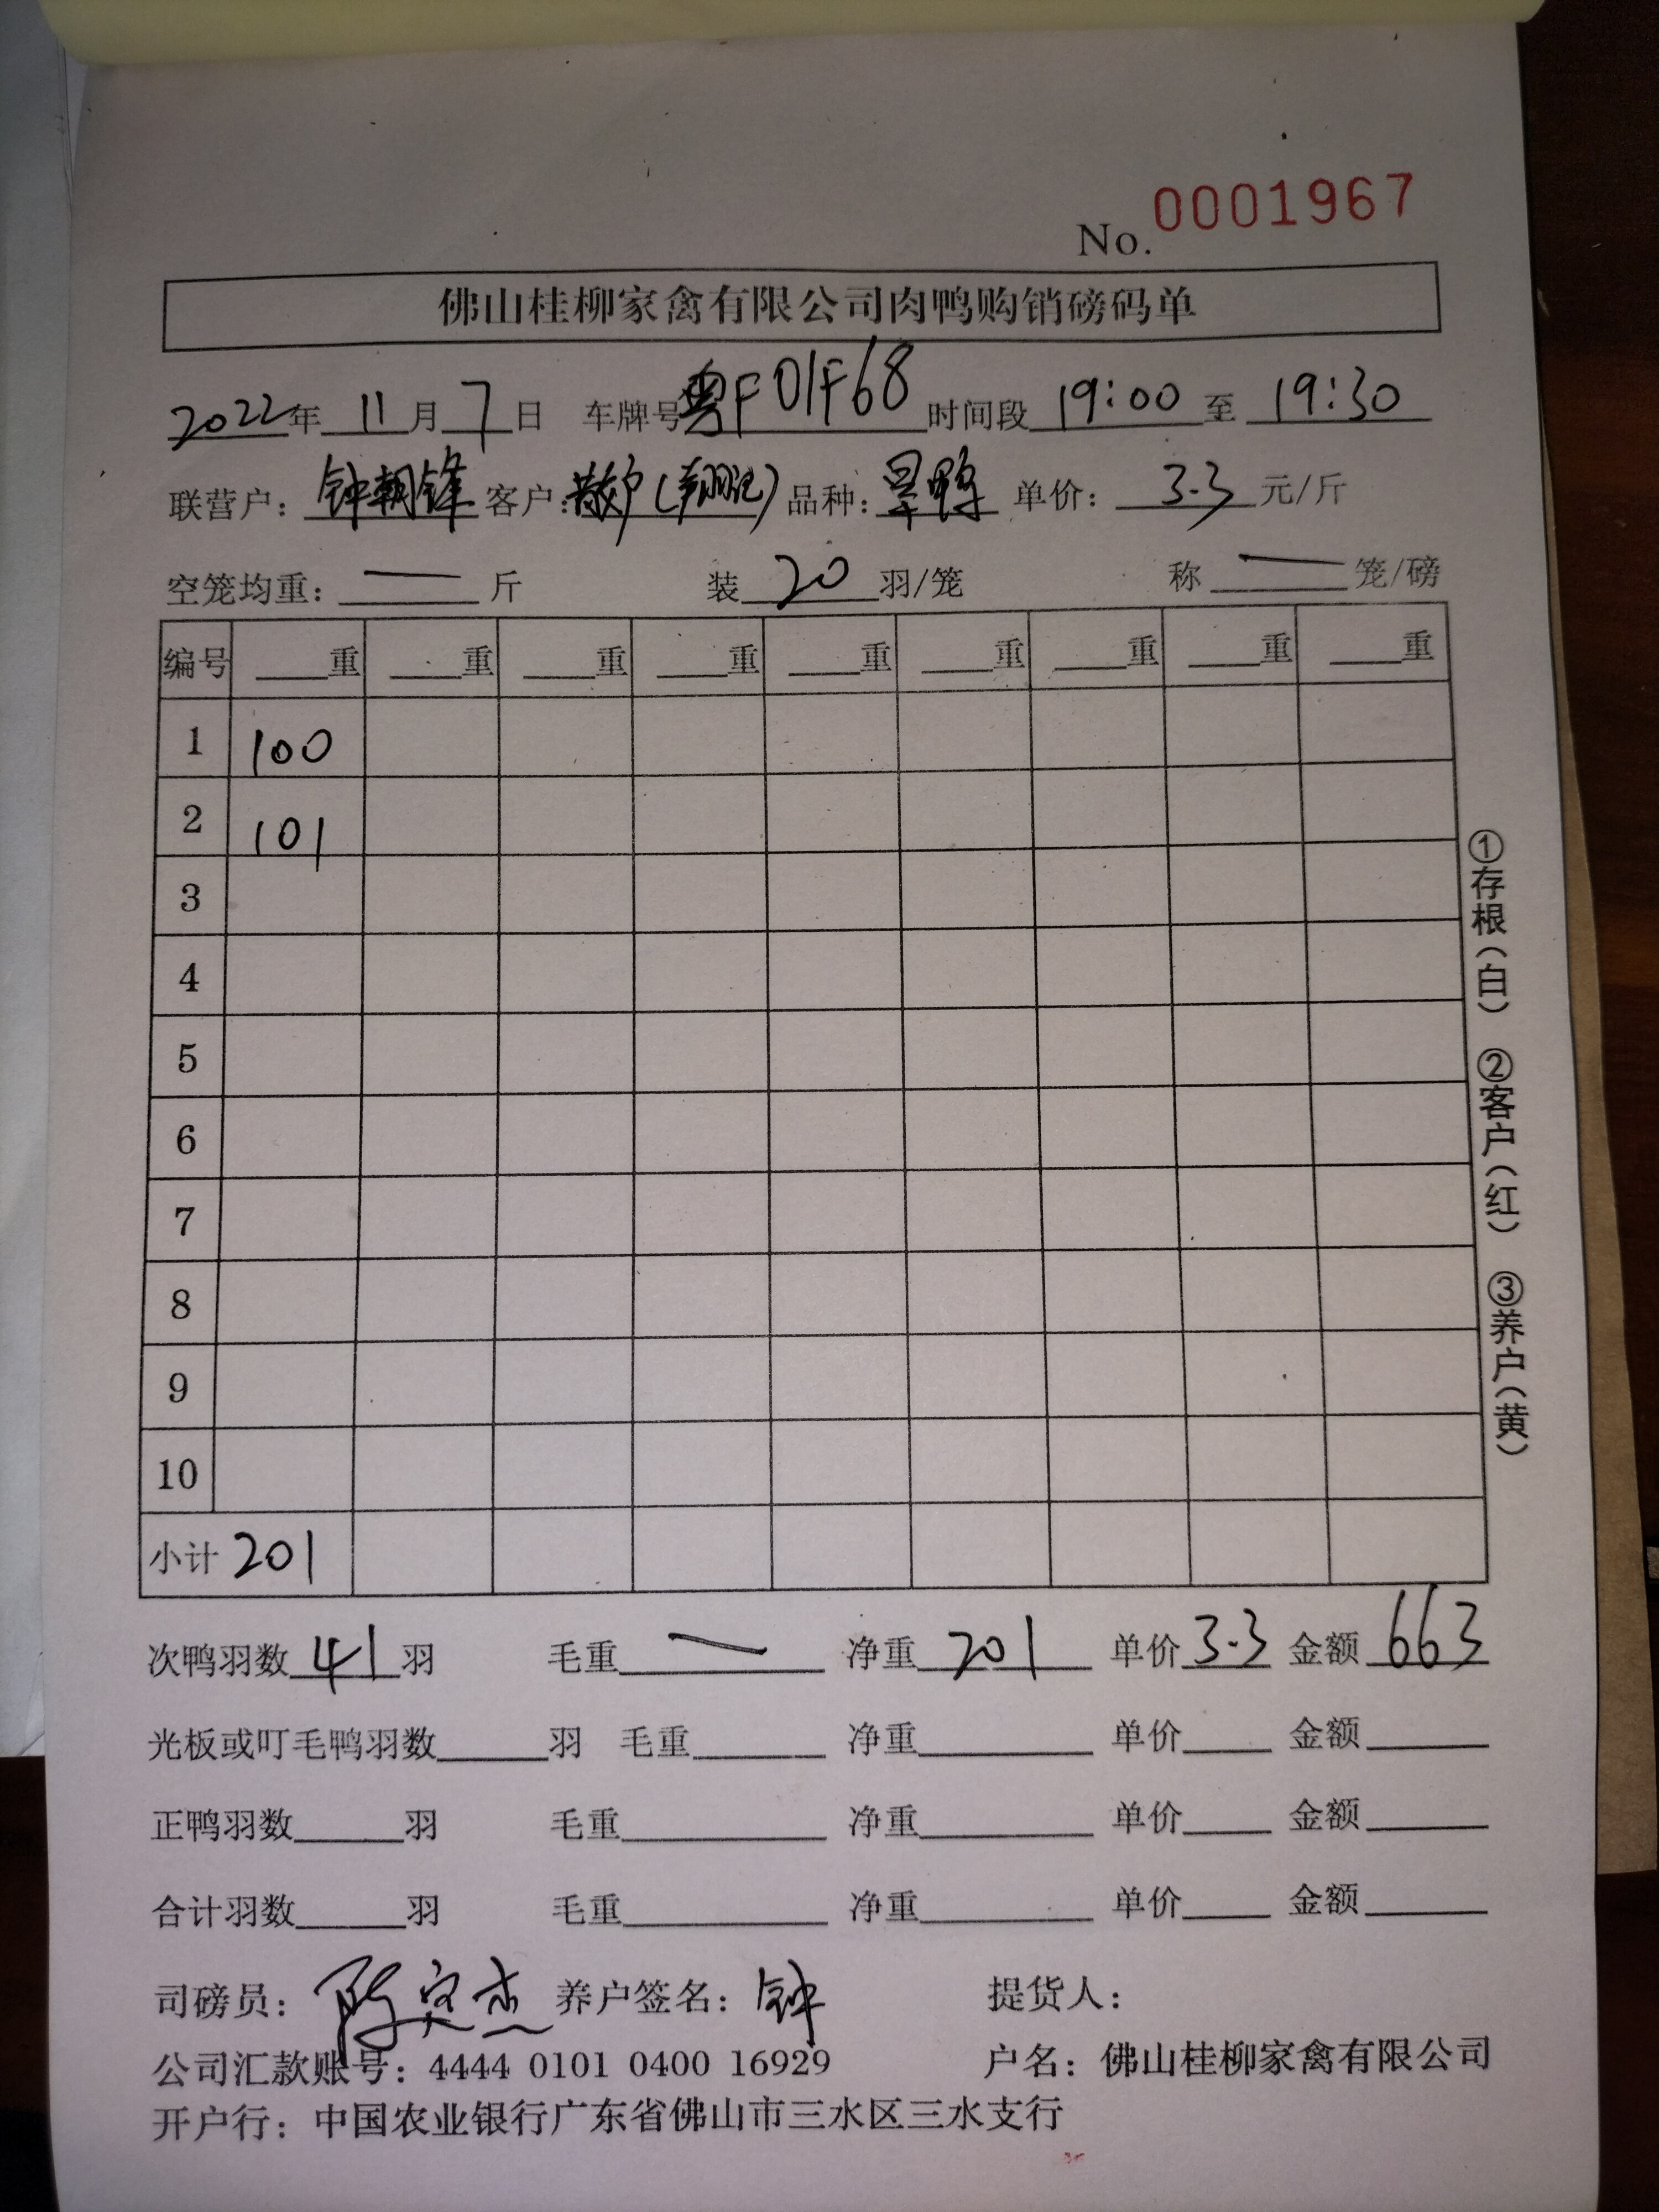 No. 0001967
佛山桂柳家禽有限公司肉鸭购销磅码单
2022年 11月 7日 车牌号 粤F01F68 时间段 19:00 至 19:30
联营户: 钟朝锋 客户: 散户(翔记) 品种: 旱鸭 单价: 3.3 元/斤
空笼均重: — 斤 装 20 羽/笼 称 — 笼/磅
编号 重 重 重 重 重 重 重 重 重
1 100
2 101
3
4
5
6
7
8
9
10
小计 201
①存根(白) ②客户(红) ③养户(黄)
次鸭羽数 41 羽 毛重 — 净重 201 单价 3.3 金额 663
光板或叮毛鸭羽数 羽 毛重 净重 单价 金额
正鸭羽数 羽 毛重 净重 单价 金额
合计羽数 羽 毛重 净重 单价 金额
司磅员: 陈定杰 养户签名: 钟 提货人:
公司汇款账号: 4444 0101 0400 16929 户名: 佛山桂柳家禽有限公司
开户行: 中国农业银行广东省佛山市三水区三水支行